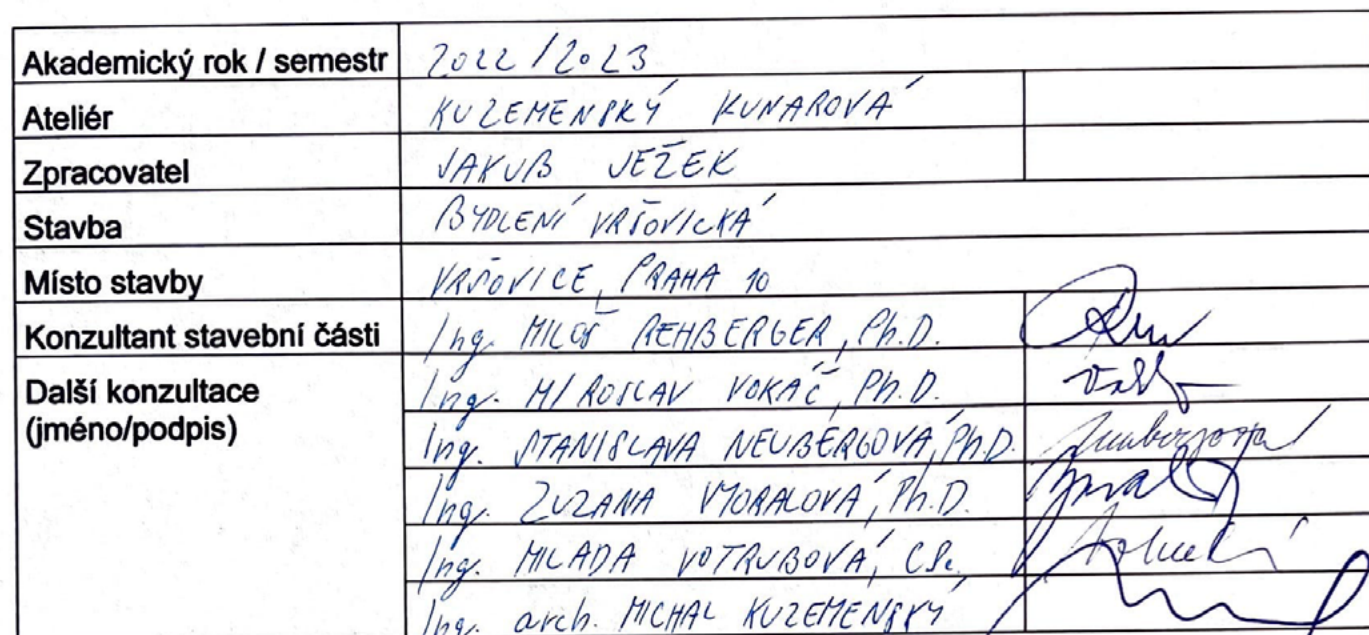 Akademický rok / semestr 2022/2023
Ateliér KUZEMENSKÝ KUNAROVÁ
Zpracovatel JAKUB JEŽEK
Stavba BYDLENÍ VRŠOVICKÁ
Místo stavby VRŠOVICE, PRAHA 10
Konzultant stavební části Ing. MILOŠ REHBERGER, Ph.D.
Další konzultace Ing. MIROSLAV VOKÁČ, Ph.D.
(jméno/podpis) Ing. STANISLAVA NEUBERGOVÁ, Ph.D.
Ing. ZUZANA VYORALOVÁ, Ph.D.
Ing. MILADA VOTRUBOVÁ, CSc,
Ing. arch. MICHAL KUZEMENSKÝ